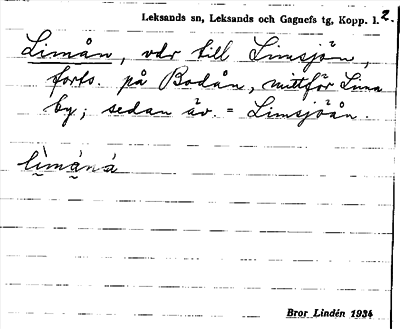 Leksands sn, Leksands och Gagnefs tg, Kopp. l. 2.
Limån, vdr till Limsjön,
forts. på Bodån, mittför Lima
by; sedan äv. = Limsjöån.
Bror Lindén 1934